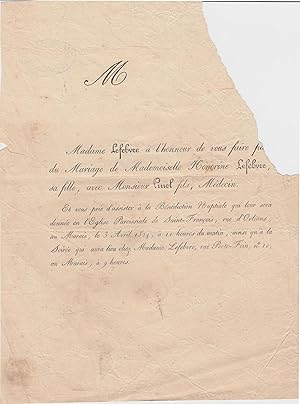 M
Madame Lefebvre a l'honneur de vous faire
du Mariage de Mademoiselle Honorine Lefebvre,
sa fille, avec Monsieur Pinel fils, Médecin.
Et vous prie d'assister à la Bénédiction Nuptiale qui leur sera
donnée en l'Eglise Paroissiale de Saint-François, rue d'Orléans,
au Marais, le 3 Avril 1824, à 11 heures du matin, ainsi qu'à la
Soirée qui aura lieu chez Madame Lefebvre, rue Porte-Foin, nº 10,
au Marais, à 9 heures.